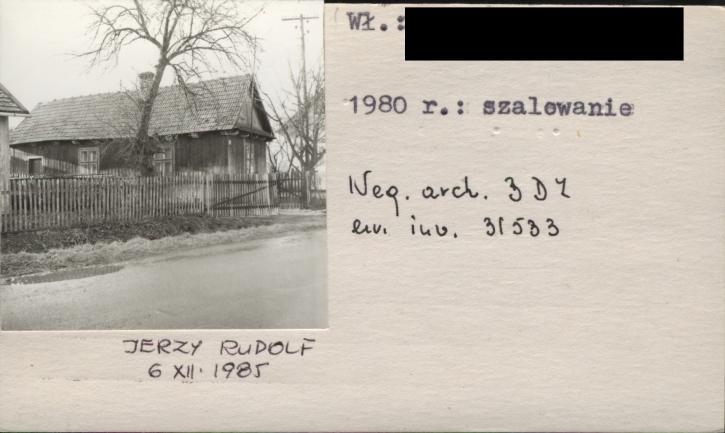 Wł.:
1980 r.: szalowanie
Neg. arch. 3 D Z
ew. inw. 31533
JERZY RUDOLF
6 XII. 1985